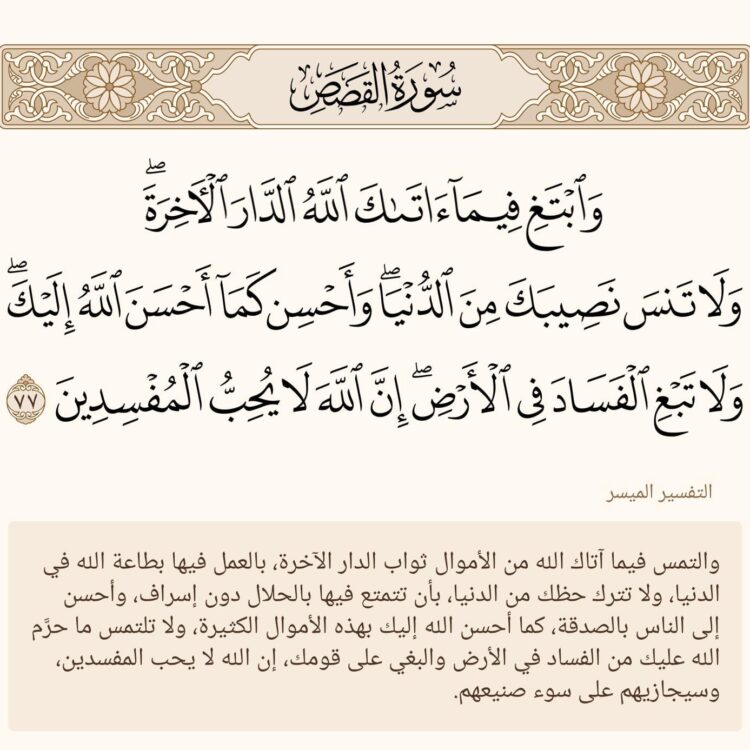 سُورَةُ القَصَصِ
وَٱبْتَغِ فِيمَآ ءَاتَىٰكَ ٱللَّهُ ٱلدَّارَ ٱلْأَخِرَةَۖ
وَلَا تَنسَ نَصِيبَكَ مِنَ ٱلدُّنْيَاۖ وَأَحْسِن كَمَآ أَحْسَنَ ٱللَّهُ إِلَيْكَۖ
وَلَا تَبْغِ ٱلْفَسَادَ فِى ٱلْأَرْضِۖ إِنَّ ٱللَّهَ لَا يُحِبُّ ٱلْمُفْسِدِينَ ٧٧
التفسير الميسر
والتمس فيما آتاك الله من الأموال ثواب الدار الآخرة، بالعمل فيها بطاعة الله في
الدنيا، ولا تترك حظك من الدنيا، بأن تتمتع فيها بالحلال دون إسراف، وأحسن
إلى الناس بالصدقة، كما أحسن الله إليك بهذه الأموال الكثيرة، ولا تلتمس ما حرَّم
الله عليك من الفساد في الأرض والبغي على قومك، إن الله لا يحب المفسدين،
وسيجازيهم على سوء صنيعهم.